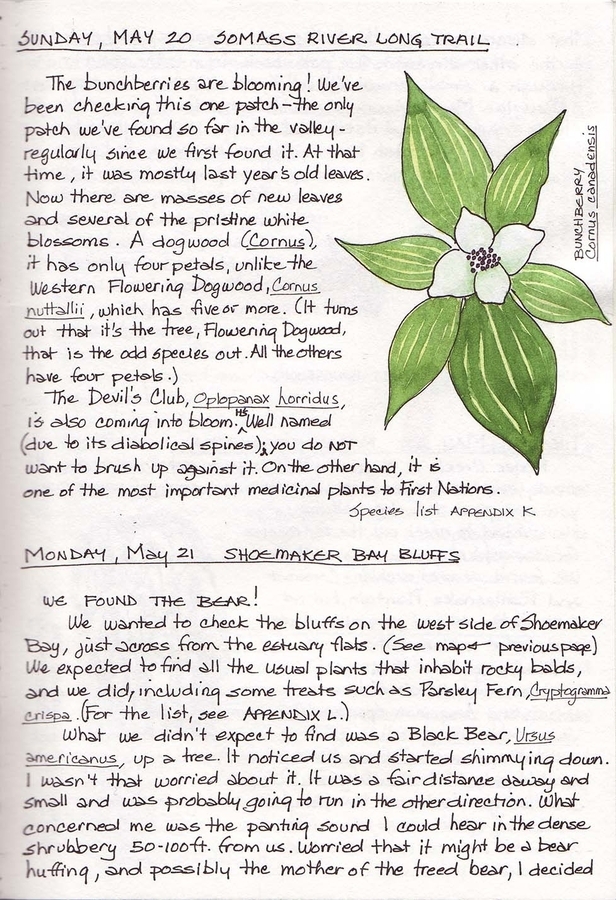 SUNDAY, MAY 20 SOMASS RIVER LONG TRAIL
The bunchberries are blooming! We've
been checking this one patch - the only
patch we've found so far in the valley -
regularly since we first found it. At that
time, it was mostly last year's old leaves.
Now there are masses of new leaves
and several of the pristine white
blossoms. A dogwood (Cornus),
it has only four petals, unlike the
Western Flowering Dogwood, Cornus
nuttallii, which has five or more. (It turns
out that it's the tree, Flowering Dogwood,
that is the odd species out. All the others
have four petals.)
The Devil's Club, Oplopanax horridus,
is also coming into bloom. It's Well named
(due to its diabolical spines); you do NOT
want to brush up against it. On the other hand, it is
one of the most important medicinal plants to First Nations.
Species list APPENDIX K
BUNCHBERRY
Cornus canadensis
MONDAY, May 21 SHOEMAKER BAY BLUFFS
WE FOUND THE BEAR!
We wanted to check the bluffs on the west side of Shoemaker
Bay, just across from the estuary flats. (See map previous page)
We expected to find all the usual plants that inhabit rocky balds,
and we did, including some treats such as Parsley Fern, Cryptogramma
crispa. (For the list, see APPENDIX L.)
What we didn't expect to find was a Black Bear, Ursus
americanus, up a tree. It noticed us and started shimmying down.
I wasn't that worried about it. It was a fair distance away and
small and was probably going to run in the other direction. What
concerned me was the panting sound I could hear in the dense
shrubbery 50-100ft. from us. Worried that it might be a bear
huffing, and possibly the mother of the treed bear, I decided